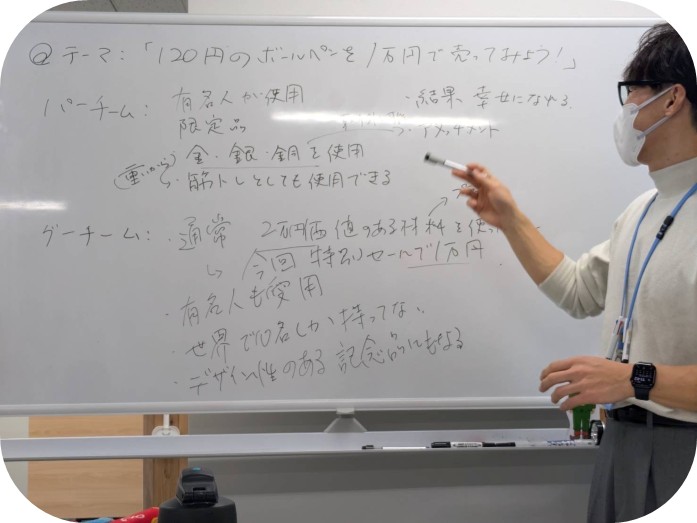 @ テーマ:「120円のボールペンを1万円で売ってみよう!」
パーチーム: 有名人が使用
限定品
金・銀・銅を使用
(重いから)
筋トレとしても使用できる
・結果、幸せになれる
・アタッチメント
グーチーム: ・通常 2万円価値のある材料を使
↳ 今回特別セールで1万円
・有名人も愛用
・世界で10名しか持ってない
・デザイン性のある記念品にもなる